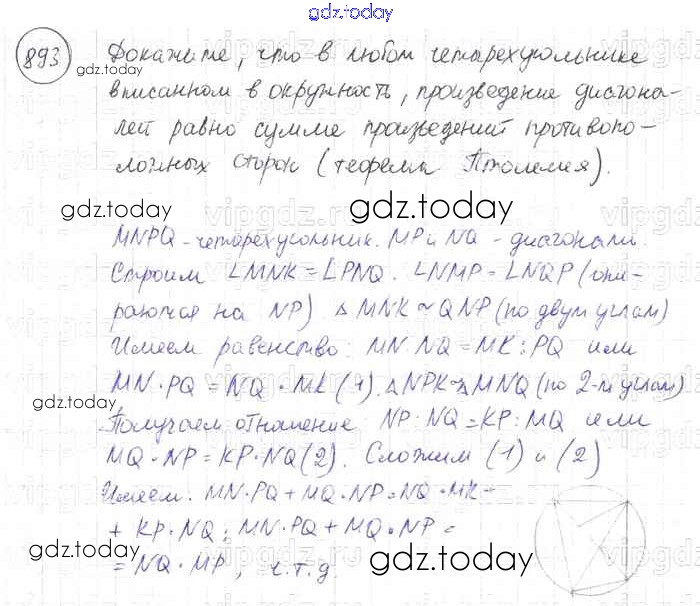 gdz.today
893 Докажите, что в любом четырехугольнике
gdz.today
вписанном в окружность, произведение диагона-
лей равно сумме произведений противопо-
ложных сторон (теорема Птолемея).
gdz.today gdz.today
MNPQ - четырехугольник. MP и NQ - диагонали.
Строим ∠MNK = ∠PNQ. ∠NMP = ∠NQP (опи-
раются на NP) ∆ MNK ~ QNP (по двум углам)
Имеем равенство: MN NQ = MK : PQ или
MN · PQ = NQ · MK (1). ∆ NPK ~ ∆ MNQ (по 2-м углам)
gdz.today
Получаем отношение NP : NQ = KP : MQ или
MQ · NP = KP · NQ (2). Сложим (1) и (2)
gdz.today
Имеем: MN · PQ + MQ · NP = NQ · MK +
+ KP · NQ; MN · PQ + MQ · NP =
gdz.today gdz.today
= NQ · MP, ч.т.д.